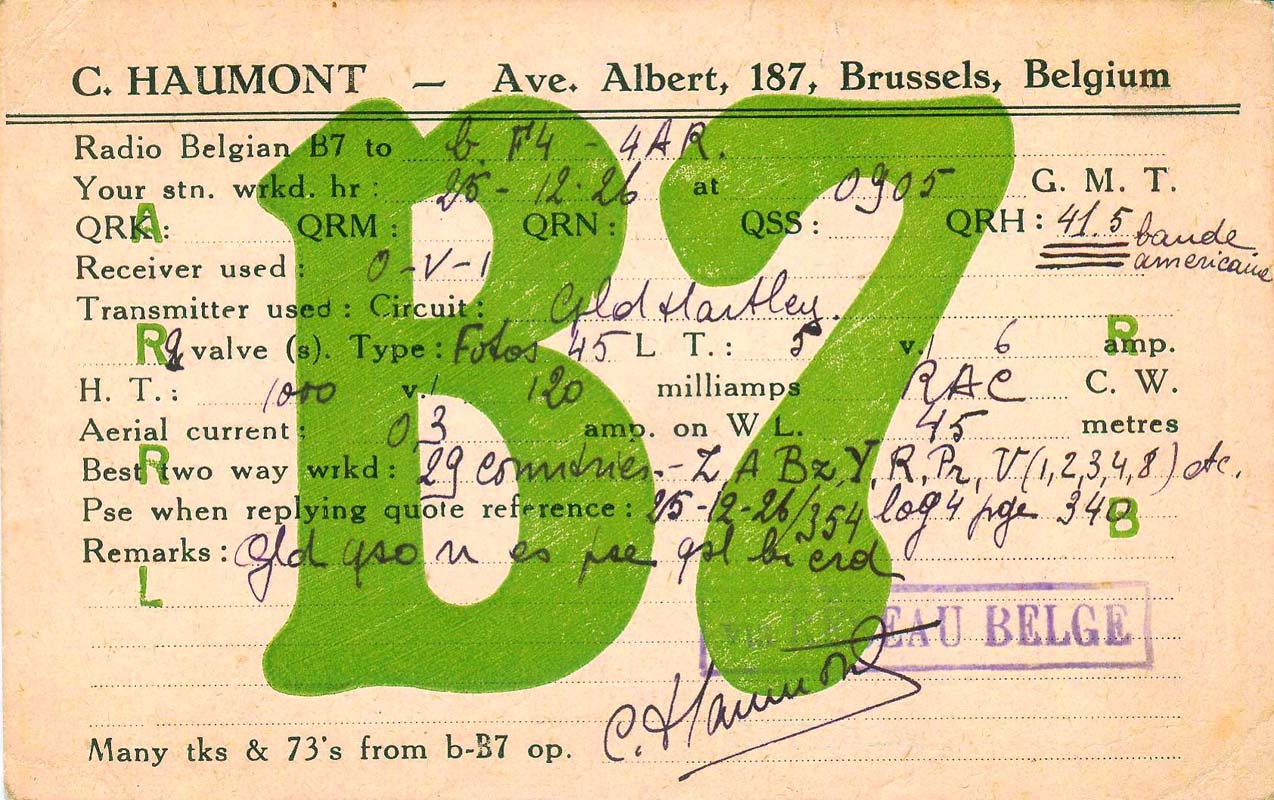 C. HAUMONT — Ave. Albert, 187, Brussels, Belgium
B7
Radio Belgian B7 to b. F4 - 4AR.
Your stn. wrkd. hr: 25-12-26 at 0905 G. M. T.
QRK: QRM: QRN: QSS: QRH: 41.5 bande americaine
A
Receiver used: 0-V-1
Transmitter used: Circuit: Gld Hartley.
R valve (s). Type: Fotos 45 L T.: 5 v. 6 amp.
R
H. T.: 1000 v. 120 milliamps RAC C. W.
Aerial current: 0,3 amp. on W L. 45 metres
Best two way wrkd: 29 countries - Z, A Bz, Y, R, Pr, V(1,2,3,4,8) etc.
R
Pse when replying quote reference: 25-12-26/354 log 4 pge 340
B
Remarks: Gld qso u es pse qsl bi crd
L
RESEAU BELGE
C. Haumont
Many tks & 73's from b-B7 op.